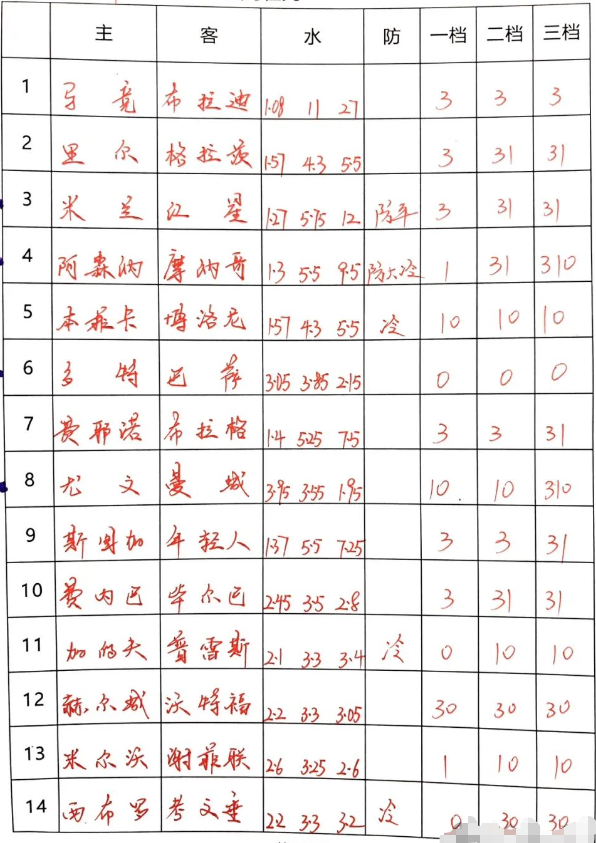 主 客 水 防 一档 二档 三档
1 马竞 布拉迪 1.08 11 27 3 3 3
2 里尔 格拉茨 1.57 4.3 5.5 3 31 31
3 米兰 红星 1.27 5.75 12 防平 3 31 31
4 阿森纳 摩纳哥 1.3 5.5 9.5 防大冷 1 31 310
5 本菲卡 博洛尼 1.57 4.3 5.5 冷 10 10 10
6 多特 巴萨 3.05 3.85 2.15 0 0 0
7 费耶诺 布拉格 1.4 5.25 7.5 3 3 31
8 尤文 曼城 3.95 3.55 1.95 10. 10 310
9 斯图加 年轻人 1.37 5.5 7.25 3 3 31
10 费内巴 毕尔巴 2.45 3.5 2.8 3 31 31
11 加的夫 普雷斯 2.1 3.3 3.4 冷 0 10 10
12 赫尔城 沃特福 2.2 3.3 3.05 30 30 30
13 米尔沃 谢菲联 2.6 3.25 2.6 1 10 10
14 西布罗 考文垂 2.2 3.3 3.2 冷 0 30 30